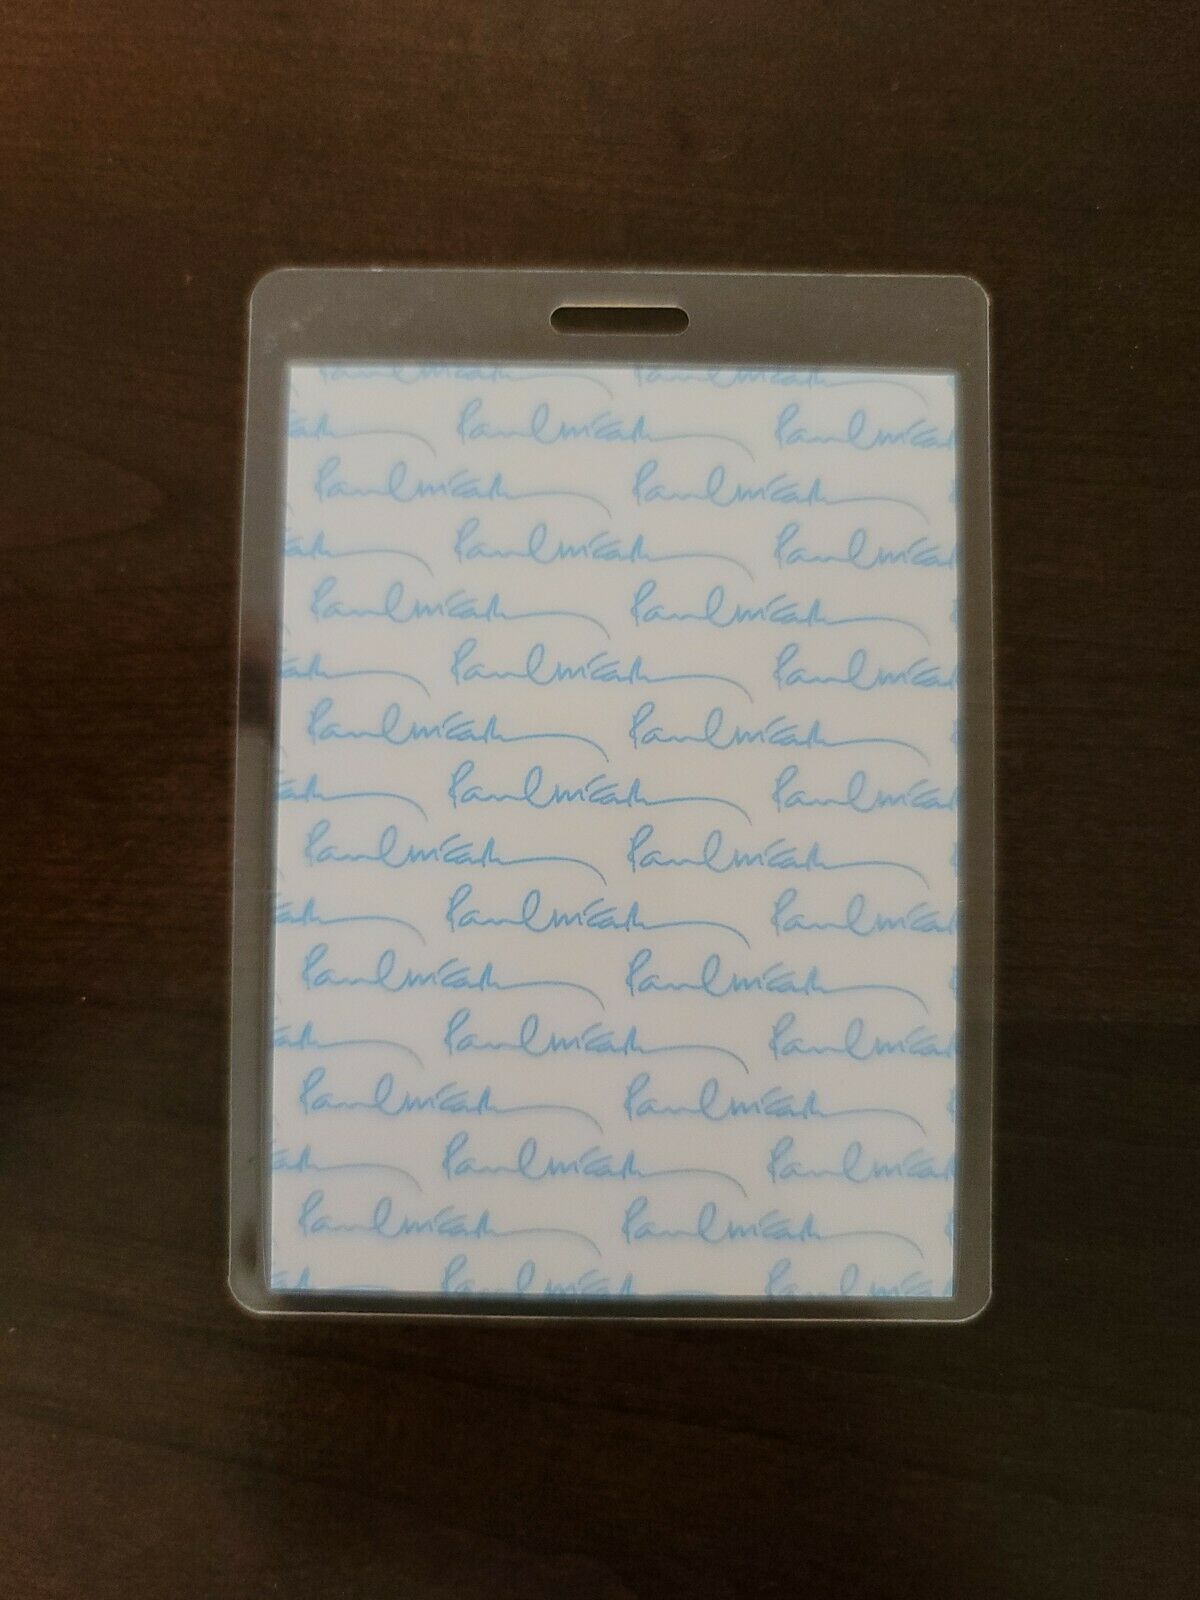 Paul McCartney Paul McCartney
Paul McCartney Paul McCartney
Paul McCartney Paul McCartney
Paul McCartney Paul McCartney
Paul McCartney Paul McCartney
Paul McCartney Paul McCartney
Paul McCartney Paul McCartney
Paul McCartney Paul McCartney
Paul McCartney Paul McCartney
Paul McCartney Paul McCartney
Paul McCartney Paul McCartney
Paul McCartney Paul McCartney
Paul McCartney Paul McCartney
Paul McCartney Paul McCartney
Paul McCartney Paul McCartney
Paul McCartney Paul McCartney